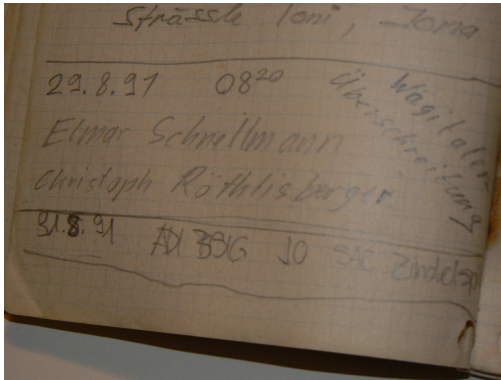 Strässle Toni, Jona
29.8.91 08²⁰ Wägitaler-
Überschreitung
Elmar Schnellmann
Christoph Röthlisberger
31.8.91 JO SAC Zindelsp